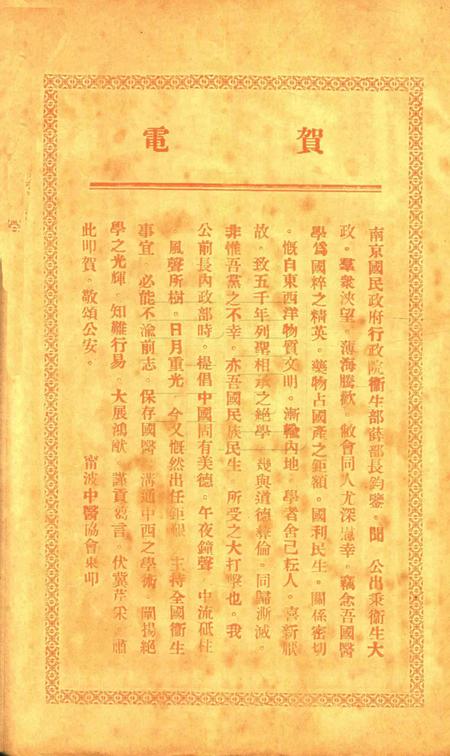 賀電
南京國民政府行政院衞生部薛部長鈞鑒。聞 公出秉衞生大
政。羣衆浹望。薄海騰歡。敝會同人尤深慶幸。竊念吾國醫
學爲國粹之精英。藥物占國產之鉅額。國利民生。關係密切
。慨自東西洋物質文明。漸輸內地。學者舍己耘人。喜新厭
故。致五千年列聖相承之絕學 幾與道德彝倫。同歸澌滅。
非惟吾黨之不幸。亦吾國民族民生 所受之大打擊也。我
公前長內政部時。提倡中國固有美德。午夜鐘聲 中流砥柱
。風聲所樹。日月重光 今又慨然出任鉅艱 主持全國衞生
事宜 必能不渝前志。保存國醫 溝通中西之學術 闡揚絕
學之光輝 知難行易 大展鴻猷 謹貢蒭言。伏冀葑采 肅
此叩賀。敬頌公安。
甯波中醫協會柬叩